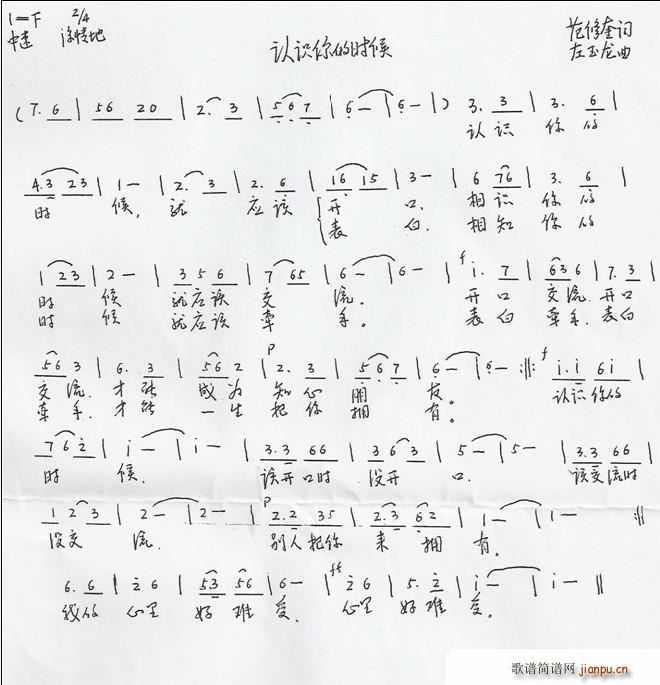 1=F 2/4
中速 深情地
认识你的时候
范修奎词
左玉龙曲
(7. 6 | 56 20 | 2. 3 | 567 | 6 — | 6 — |) 3. 3 | 3. 6 |
认 识 你 的
4.3 23 | 1 — | 2. 3 | 2. 6 | 16 15 | 3 — | 6 76 | 3. 6 |
时 候, 就 应该 开 口. 相 识 你 的
表 白. 相 知 你 的
1 23 | 2 — | 3 5 6 | 7 65 | 6 — | 6 — | f i. 7 | 636 | 7. 3 |
时 候 就应该 交 流. 开 口 交 流. 开 口
时 候 就应该 牵 手. 表 白 牵 手. 表白
56 3 | 6. 3 | 56 2 | p 2. 3 | 567 | 6 — | 6 — :||: f i.i 6i |
交 流. 才 能 成 为 知 心 朋 友. 认识 你的
牵 手. 才 能 一 生 把 你 拥 有.
7 6 2 | i — | i — | 3.3 66 | 3 6 3 | 5 — | 5 — | 3.3 66 |
时 候. 该开口时 没开 口. 该交流时
1 2 3 | 2 — | 2 — | p 2.2 35 | 2.3 62 | 1 — | 1 — :||
没交 流. 别人把你 来 拥 有.
6. 6 | 2 6 | 53 56 | 6 — | ff 2 6 | 5. 2 | i — | i — ||
我的 心里 好 难 受. 心里 好 难 受.
歌谱简谱网
jianpu.cn